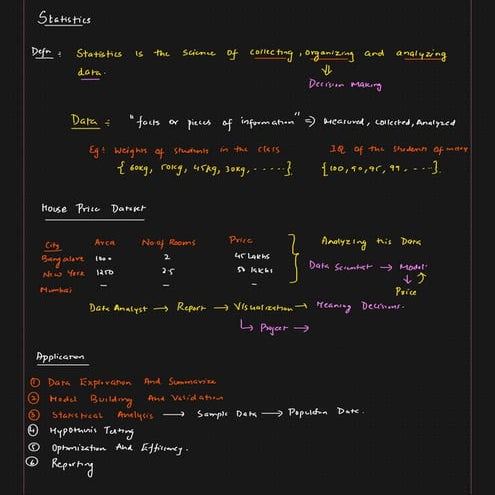 Statistics
Defn : Statistics is the science of collecting, organizing and analyzing
data.
⇓
Decision Making
Data : "facts or pieces of information" ⇒ Measured, collected, Analyzed
Eg : Weights of students in the class
{ 60kg, 50kg, 45kg, 30kg, ...... }
IQ of the students of
{ 100, 90, 95, 99 .....}.
House Price Dataset
City Area No of Rooms Price
Bangalore 1200 2 45 Lakhs
New York 1250 2.5 50 lakhs
Mumbai — — —
Analyzing this Data
Data Scientist → Model
Price
Data Analyst → Report → Visualization → Meaning Decisions.
↳ Project →
Application
① Data Exploration And Summarize
② Model Building And Validation
③ Statistical Analysis → Sample Data → Data.
④ Testing
⑤ Optimization And
⑥ Reporting